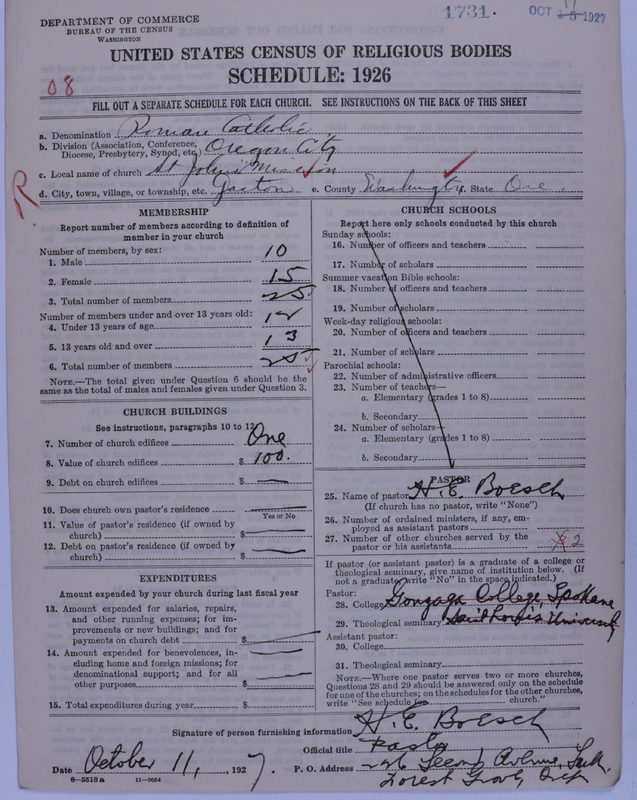 1731.
OCT 15 1927
17
DEPARTMENT OF COMMERCE
BUREAU OF THE CENSUS
WASHINGTON
UNITED STATES CENSUS OF RELIGIOUS BODIES
SCHEDULE: 1926
08
FILL OUT A SEPARATE SCHEDULE FOR EACH CHURCH. SEE INSTRUCTIONS ON THE BACK OF THIS SHEET
a. Denomination Roman Catholic
b. Division (Association, Conference, Diocese, Presbytery, Synod, etc.) Oregon City
c. Local name of church St John's Mission
d. City, town, village, or township, etc. Gaston e. County Washington State Ore
R
MEMBERSHIP
Report number of members according to definition of
member in your church
Number of members, by sex:
1. Male 10
2. Female 15
3. Total number of members 25
Number of members under and over 13 years old:
4. Under 13 years of age 12
5. 13 years old and over 13
6. Total number of members 25
NOTE.—The total given under Question 6 should be the
same as the total of males and females given under Question 3.
CHURCH BUILDINGS
See instructions, paragraphs 10 to 12
7. Number of church edifices One
8. Value of church edifices $ 100.
9. Debt on church edifices $ —
10. Does church own pastor's residence —
Yes or No
11. Value of pastor's residence (if owned by
church) $ —
12. Debt on pastor's residence (if owned by
church) $ —
EXPENDITURES
Amount expended by your church during last fiscal year
13. Amount expended for salaries, repairs,
and other running expenses; for im-
provements or new buildings; and for
payments on church debt $ —
14. Amount expended for benevolences, in-
cluding home and foreign missions; for
denominational support; and for all
other purposes $ —
15. Total expenditures during year $
CHURCH SCHOOLS
Report here only schools conducted by this church
Sunday schools:
16. Number of officers and teachers
17. Number of scholars
Summer vacation Bible schools:
18. Number of officers and teachers
19. Number of scholars
Week-day religious schools:
20. Number of officers and teachers
21. Number of scholars
Parochial schools:
22. Number of administrative officers
23. Number of teachers—
a. Elementary (grades 1 to 8)
b. Secondary
24. Number of scholars—
a. Elementary (grades 1 to 8)
b. Secondary
PASTOR
25. Name of pastor H. E. Boesch
(If church has no pastor, write "None")
26. Number of ordained ministers, if any, em-
ployed as assistant pastors
27. Number of other churches served by the
pastor or his assistants 2
If pastor (or assistant pastor) is a graduate of a college or
theological seminary, give name of institution below. (If
not a graduate, write "No" in the space indicated.)
Pastor:
28. College Gonzaga College, Spokane
29. Theological seminary Saint Louis University
Assistant pastor:
30. College
31. Theological seminary
NOTE.—Where one pastor serves two or more churches,
Questions 28 and 29 should be answered only on the schedule
for one of the churches; on the schedules for the other churches,
write "See schedule for church."
Signature of person furnishing information H. E. Boesch
Official title Pastor
Date October 11, 1927. P. O. Address 226 Second Avenue, South
Forest Grove, Oreg
8—5518a 11—9664